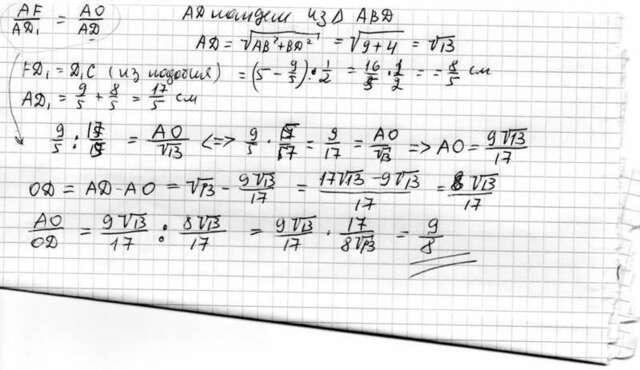 AF/AD₁ = AO/AD
AD найдем из Δ ABD
AD = √(AB²+BD²) = √(9+4) = √13
FD₁ = D₁C (из подобия) = (5 - 9/5) · 1/2 = 16/5 · 1/2 = 8/5 см
AD₁ = 9/5 + 8/5 = 17/5 см
9/5 : 17/5 = AO/√13 <=> 9/5 · 5/17 = 9/17 = AO/√13 => AO = 9√13/17
OD = AD - AO = √13 - 9√13/17 = (17√13 - 9√13)/17 = 8√13/17
AO/OD = 9√13/17 : 8√13/17 = 9√13/17 · 17/(8√13) = 9/8